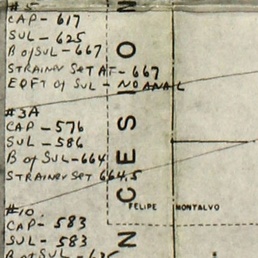 #5
CAP - 617
SUL - 625
B of SUL - 667
STRAINER SET AT - 667
EQFT of SUL - NO ANAL
#3A
CAP - 576
SUL - 586
B of SUL - 664
STRAINER SET 664.5
#10
CAP - 583
SUL - 583
B of SUL - 635
NCESION
FELIPE MONTALVO
N